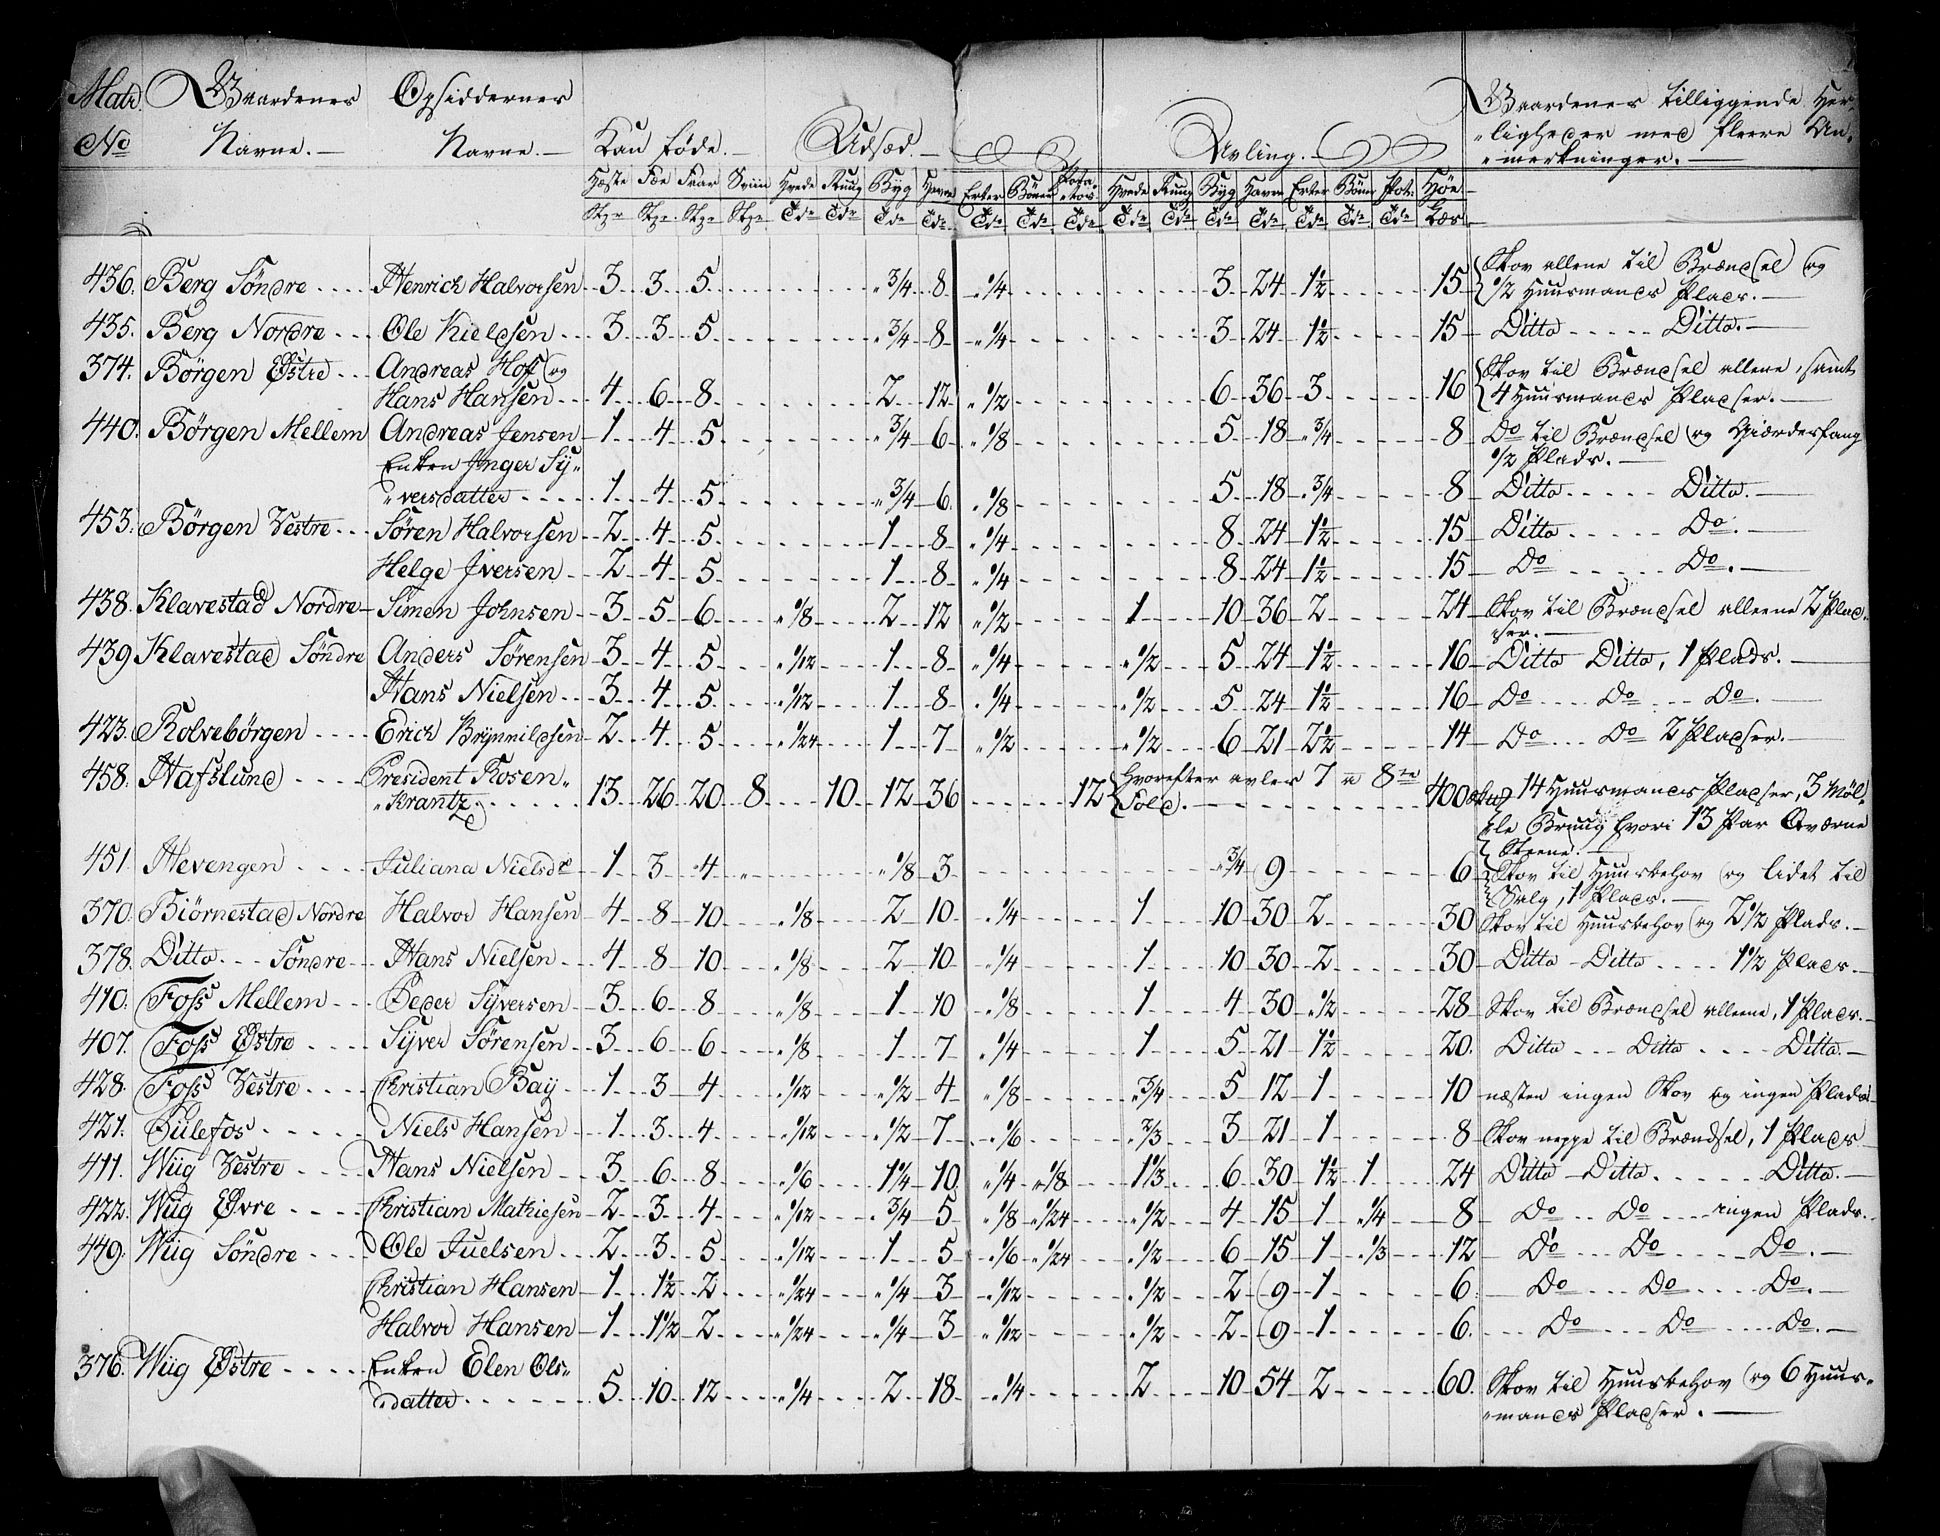 Matr. Gaardenes Opsiddernes Gaardenes tilliggende Her-
No Navne. Navne. Kan føde. Udsæd. Avling. ligheder med fleere An-
merkninger.
Hæste Fæe Faar Sviin Hvede Rug Byg Havre Erter Bönner Pota-tos Hvede Rug Byg Havre Erter Bönner Pot: Höe
Stkr Stkr Stkr Stkr Tdr Tdr Tdr Tdr Tdr Tdr Tdr Tdr Tdr Tdr Tdr Tdr Tdr Tdr Læs
Skov allene til Brændsel og
436. Berg Söndre Henrich Halvorsen 3 3 5 3/4 8 1/4 3 24 1 1/2 15 1/2 Huusmands Plads.
435. Berg Nordre Ole Kieldsen 3 3 5 3/4 8 1/4 3 24 1 1/2 15 Ditto Ditto.
374. Börgen Østre Andreas Hoff og Skov til Brændsel allene, samt
Hans Hansen 4 6 8 2 12 1/2 6 36 3 16 4 Huusmands Pladser.
440. Börgen Mellem Andreas Jensen 1 4 5 3/4 6 1/8 5 18 3/4 8 Do til Brændsel og Gierdefang
Enken Inger Sy- 1/2 Plads.
versdatter 1 4 5 3/4 6 1/8 5 18 3/4 8 Ditto Ditto.
453. Börgen Vestre Sören Halvorsen 2 4 5 1 8 1/4 8 24 1 1/2 15 Ditto Do.
Helge Iversen 2 4 5 1 8 1/4 8 24 1 1/2 15 Do Do.
438. Klavestad Nordre Simen Johnsen 3 5 6 1/8 2 12 1/2 1 10 36 2 24 Skov til Brændsel alleene 2 Plad-
ser.
439 Klavestad Söndre Anders Sörensen 3 4 5 1/12 1 8 1/4 1/2 5 24 1 1/2 16 Ditto Ditto, 1 Plads.
Hans Nielsen 3 4 5 1/12 1 8 1/4 1/2 5 24 1 1/2 16 Do Do Do.
423. Rolvebörgen Erich Brynnildsen 2 4 5 1/24 1 7 1/2 1/2 6 21 2 1/2 14 Do Do 2 Pladser.
458. Hafslund President Rosen- Hvorefter avler 7 a 8te
Krantz 13 26 20 8 10 12 36 12 Fold. 400 14 Huusmands Pladser, 3 Möl-
le Brug hvori 13 Par Qværne
Steene.
451. Hevengen Juliana Nielsdr 1 3 4 1/8 3 3/4 9 6 Skov til Huusbehov og lidet til
Salg, 1 Plads.
370. Biörnestad Nordre Halvor Hansen 4 8 10 1/8 2 10 1/4 1 10 30 2 30 Skov til Huusbehov og 2 1/2 Plads.
378. Ditto Söndre Hans Nielsen 4 8 10 1/8 2 10 1/4 1 10 30 2 30 Ditto Ditto 1 1/2 Plads.
410. Foss Mellem Peder Syversen 3 6 8 1/8 1 10 1/8 1 4 30 1/2 28 Skov til Brændsel alleene, 1 Plads.
407. Foss Østre Syver Sörensen 3 6 6 1/8 1 7 1/4 1 5 21 1 1/2 20. Ditto Ditto Ditto.
428. Foss Vestre Christian Bay 1 3 4 1/12 1/2 4 1/8 3/4 5 12 1 10 næsten ingen Skov og ingen Plads
421. Pulefos Niels Hansen 1 3 4 1/12 1/2 7 1/6 2/3 3 21 1 8 Skov neppe til Brændsel, 1 Plads
411. Wiig Vestre Hans Nielsen 3 6 8 1/6 1 1/4 10 1/4 1/8 1 1/3 6 30 1 1/2 1 24 Ditto Ditto Ditto.
422. Wiig Øvre Christian Mathiesen 2 3 4 1/12 3/4 5 1/8 1/24 1/2 4 15 1 1/4 8 Do Do ingen Plads.
449. Wiig Söndre Ole Juelsen 2 3 5 1/12 1 5 1/6 1/24 1/2 6 15 1 1/3 12 Do Do Do.
Christian Hansen 1 1 1/2 2 1/24 1/4 3 1/12 1/2 2 9 1 6. Do Do Do.
Halvor Hansen 1 1 1/2 2 1/24 1/4 3 1/12 1/2 2 9 1 6. Do Do Do.
376. Wiig Østre Enken Elen Ols-
datter 5 10 12 1/4 2 18 1/4 2 10 54 2 60. Skov til Huusbehov og 6 Huus-
mands Pladser.